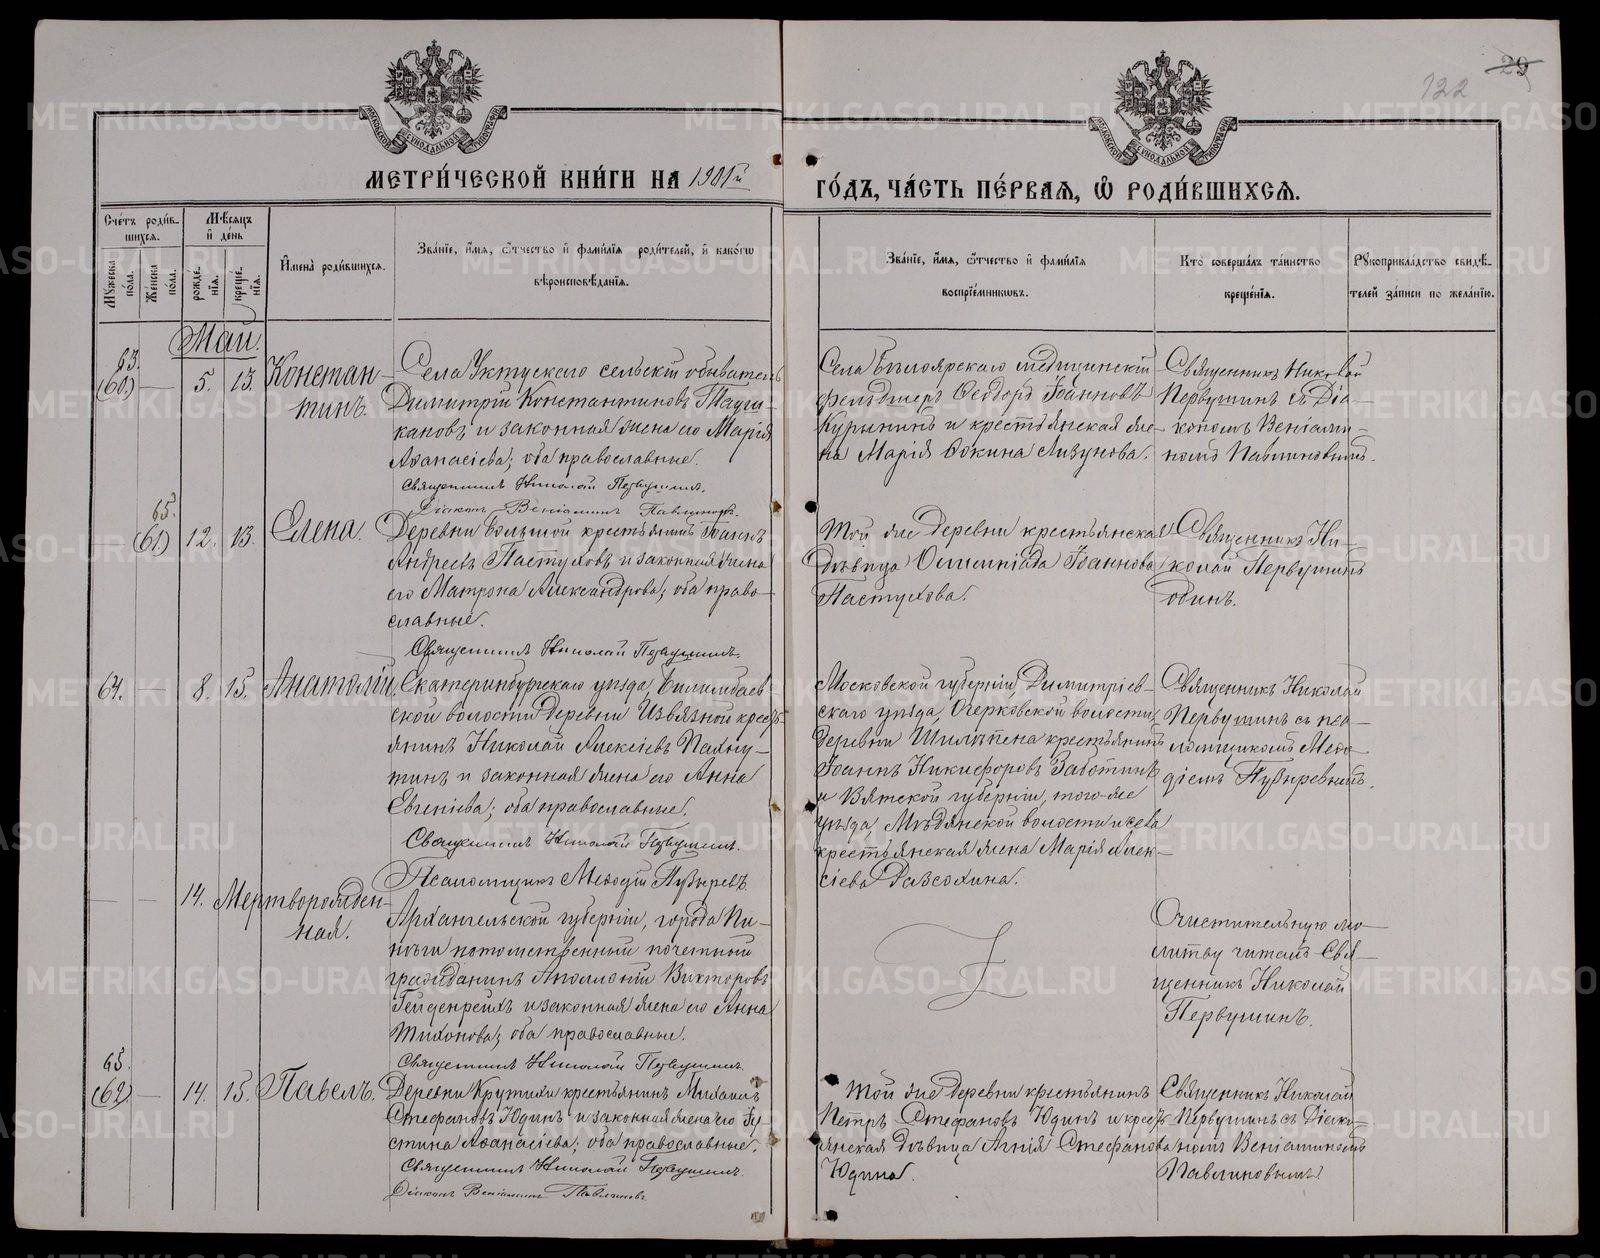 29
122
МЕТРИ́ЧЕСКОЙ КНИ́ГИ НА 1901й
ГО́ДЪ, ЧА́СТЬ ПЕ́РВАЯ, Ѡ҆ РОДИ́ВШИХСѦ.
Сче́тъ роди́в-
шихсѧ.
Мꙋ́жеска по́ла.
Же́нска по́ла.
Мѣ́сѧцъ
и҆ де́нь
рожде́-
нїѧ.
креще́-
нїѧ.
И҆мена̀ роди́вшихсѧ.
Зва́нїе, и҆́мѧ, ѻ҆́тчество и҆ фами́лїѧ роди́телей, и҆ како́гѡ
вѣроисповѣ́данїѧ.
Зва́нїе, и҆́мѧ, ѻ҆́тчество и҆ фами́лїѧ
воспрїе́мникѡвъ.
Кто̀ соверша́лъ та́инство
креще́нїѧ.
Рꙋкоприкла́дство свидѣ́-
телей за́писи по жела́нїю.
Май.
63.
(60)
—
5.
13.
Констан-
тинъ.
Села Уктускаго сельскій обыватель
Димитрій Константиновъ
кановъ и законная жена его Марія
Аѳанасіева; оба православные.
Священникъ Николай Первушинъ.
Діаконъ Веніаминъ Павлиновъ.
Села медицинскій
фельдшеръ Ѳеодоръ Іоанновъ
Курынинъ и крестьянская же-
на Марія Ѳокина Лизунова.
Священникъ Николай
Первушинъ съ Діа-
кономъ Веніами-
номъ Павлиновымъ.
65.
(61)
12.
13.
Елена.
Деревни Большой крестьянинъ Іоаннъ
Андреевъ Пастуховъ и законная жена
его Матрона Александрова; оба право-
славные.
Священникъ Николай Первушинъ.
Той же деревни крестьянская
дѣвица Олимпіада Іоаннова
Пастухова.
Священникъ Ни-
колай Первушинъ
одинъ.
64.
—
8.
15.
Анатолій.
Екатеринбургскаго уѣзда, Билимбаев-
ской волости деревни Извязной кресть-
янинъ Николай Алексіевъ Пахну-
тинъ и законная жена его Анна
Евгеніева; оба православные.
Священникъ Николай Первушинъ.
Псаломщикъ Меѳодій Пузыревъ
Московской губерніи, Димитріев-
скаго уѣзда, Озерковской волости,
деревни крестьянинъ
Іоаннъ Никифоровъ Заботинъ
и Вятской губерніи, того-же
уѣзда, Мѣдянской волости и села
крестьянская жена Марія Алек-
сіева
Священникъ Николай
Первушинъ съ пса-
ломщикомъ Меѳо-
діемъ Пузыревымъ.
—
—
14.
Мертворожден-
ная.
Архангельской губерніи, города Пи-
неги потомственный почетный
гражданинъ Аполлоній Викторовъ
Гейденрейхъ и законная жена его Анна
Тихонова; оба православные.
Священникъ Николай Первушинъ.
Очистительную мо-
литву читалъ Свя-
щенникъ Николай
Первушинъ.
65.
(62)
—
14.
15.
Павелъ.
Деревни Крутихи крестьянинъ Михаилъ
Стефановъ Юдинъ и законная жена его Іу-
стина Аѳанасіева; оба православные.
Священникъ Николай Первушинъ.
Діаконъ Веніаминъ Павлиновъ.
Той же деревни крестьянинъ
Петръ Стефановъ Юдинъ и кресть-
янская дѣвица Агнія Стефанова
Юдина.
Священникъ Николай
Первушинъ съ Діако-
номъ Веніаминомъ
Павлиновымъ.
METRIKI.GASO-URAL.RU